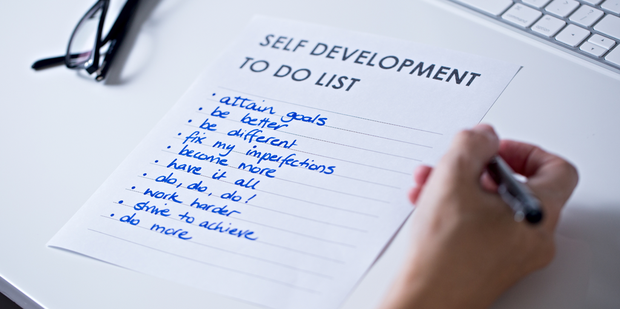 SELF DEVELOPMENT
TO DO LIST
• attain goals
• be better
• be different
• fix my imperfections
• become more
• have it all
• do, do, do!
• work harder
• strive to achieve
• do more